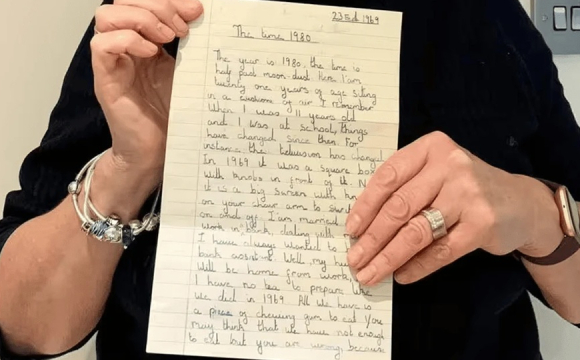 23rd 1969
The time 1980
The year is 1980, the time is
half past moon dust. Here I am
twenty one years of age siting
in a cushion of air I remember
When I was 11 years old
and I was at school, things
have changed since then. For
instance the television has changed
In 1969 it was a square box
with knobs in front of it. N
it is a big screen with kn
on your chair arm to
on and off. I am married
work in bank, dealing with
I have always wanted to
bank Well my hu
Will be home from work
I have no tea to prepare like
We did in 1969. All we have is
a piece of chewing gum to eat You
may think that we have not enough
to eat but you are wrong, because